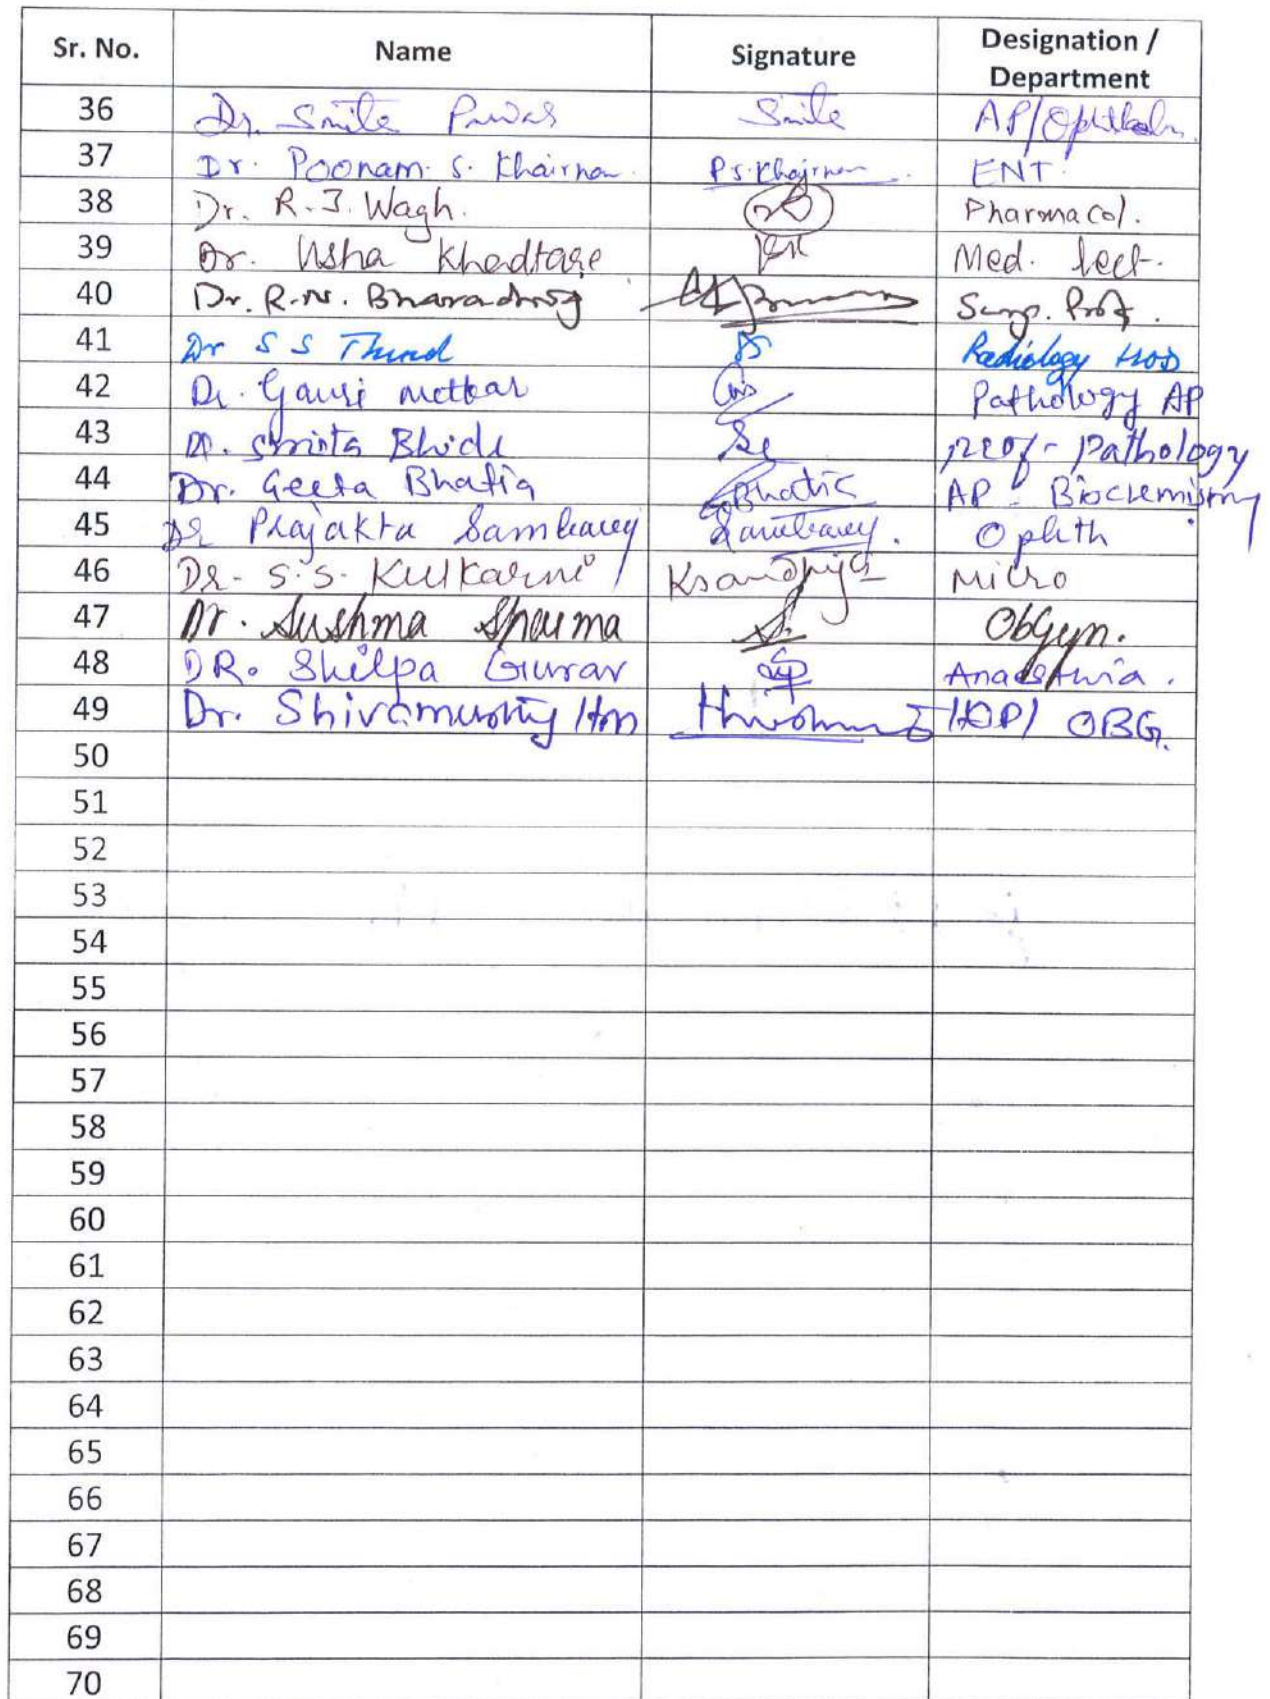 Sr. No. Name Signature Designation / Department
36 Dr. Smita Pawar Smita AP/Ophthalm.
37 Dr. Poonam. S. Khairnar P S. Khairnar ENT
38 Dr. R. J. Wagh. Pharmacol.
39 Dr. Usha Khedtare Med. lect.
40 Dr. R. N. Bharadwaj Surg. Prof.
41 Dr S S Thind Radiology HOD
42 Dr. Gauri Mettkar Pathology AP
43 Dr. Smita Bhide Prof - Pathology
44 Dr. Geeta Bhatia GBhatia AP - Biochemistry
45 Dr Prajakta Sambarey Sambarey. Ophth
46 Dr. S. S. Kulkarni Ksandhya Micro
47 Dr. Sushma Sharma ObGyn.
48 DR. Shilpa Gurav Anaesthia.
49 Dr. Shivamurthy OBG.
50
51
52
53
54
55
56
57
58
59
60
61
62
63
64
65
66
67
68
69
70